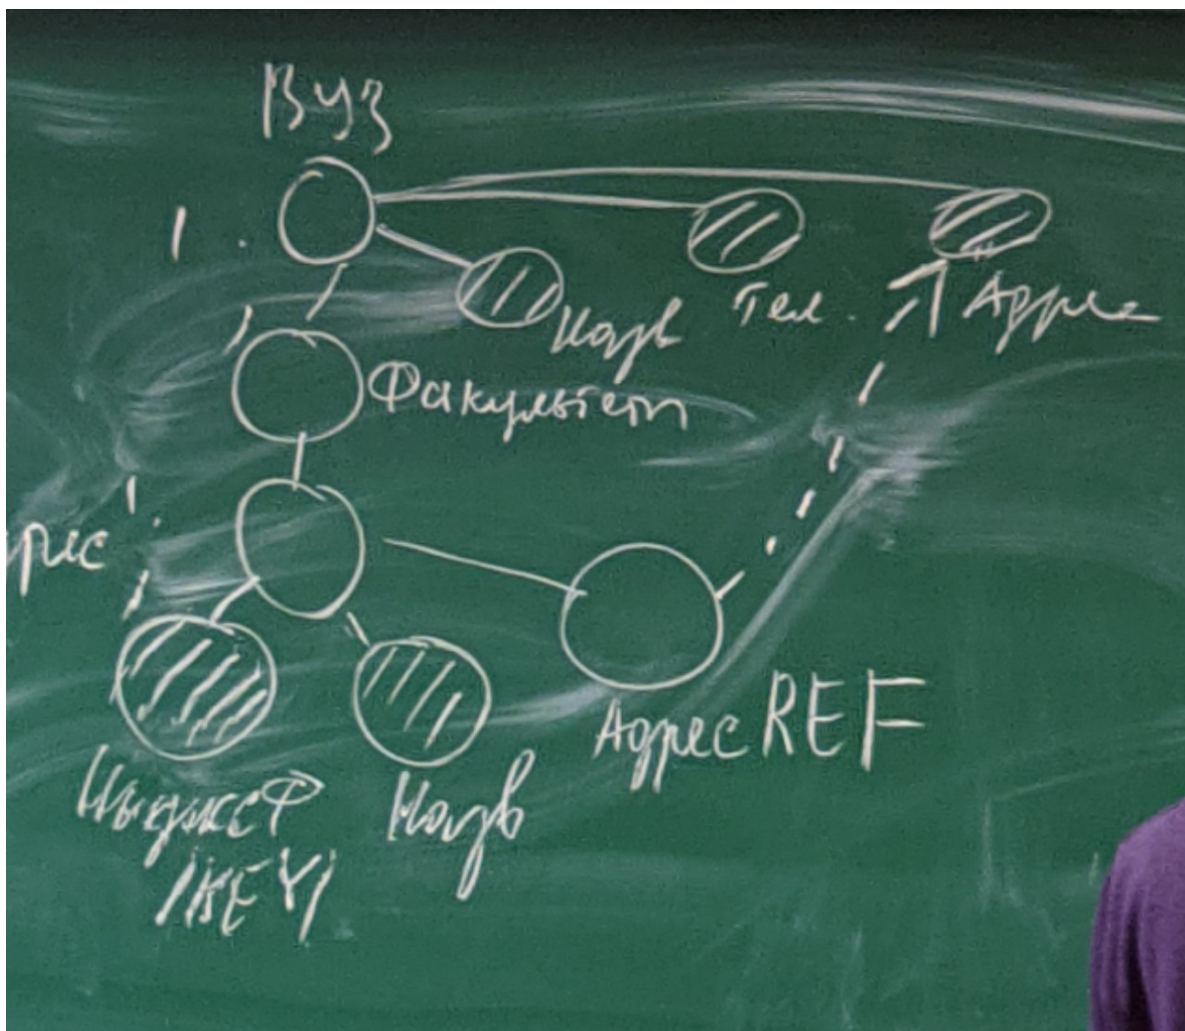 Вуз
1.
Назв
Тел.
Адрес
Факультет
рес
Адрес REF
ИндексФ
Назв
/KEY/